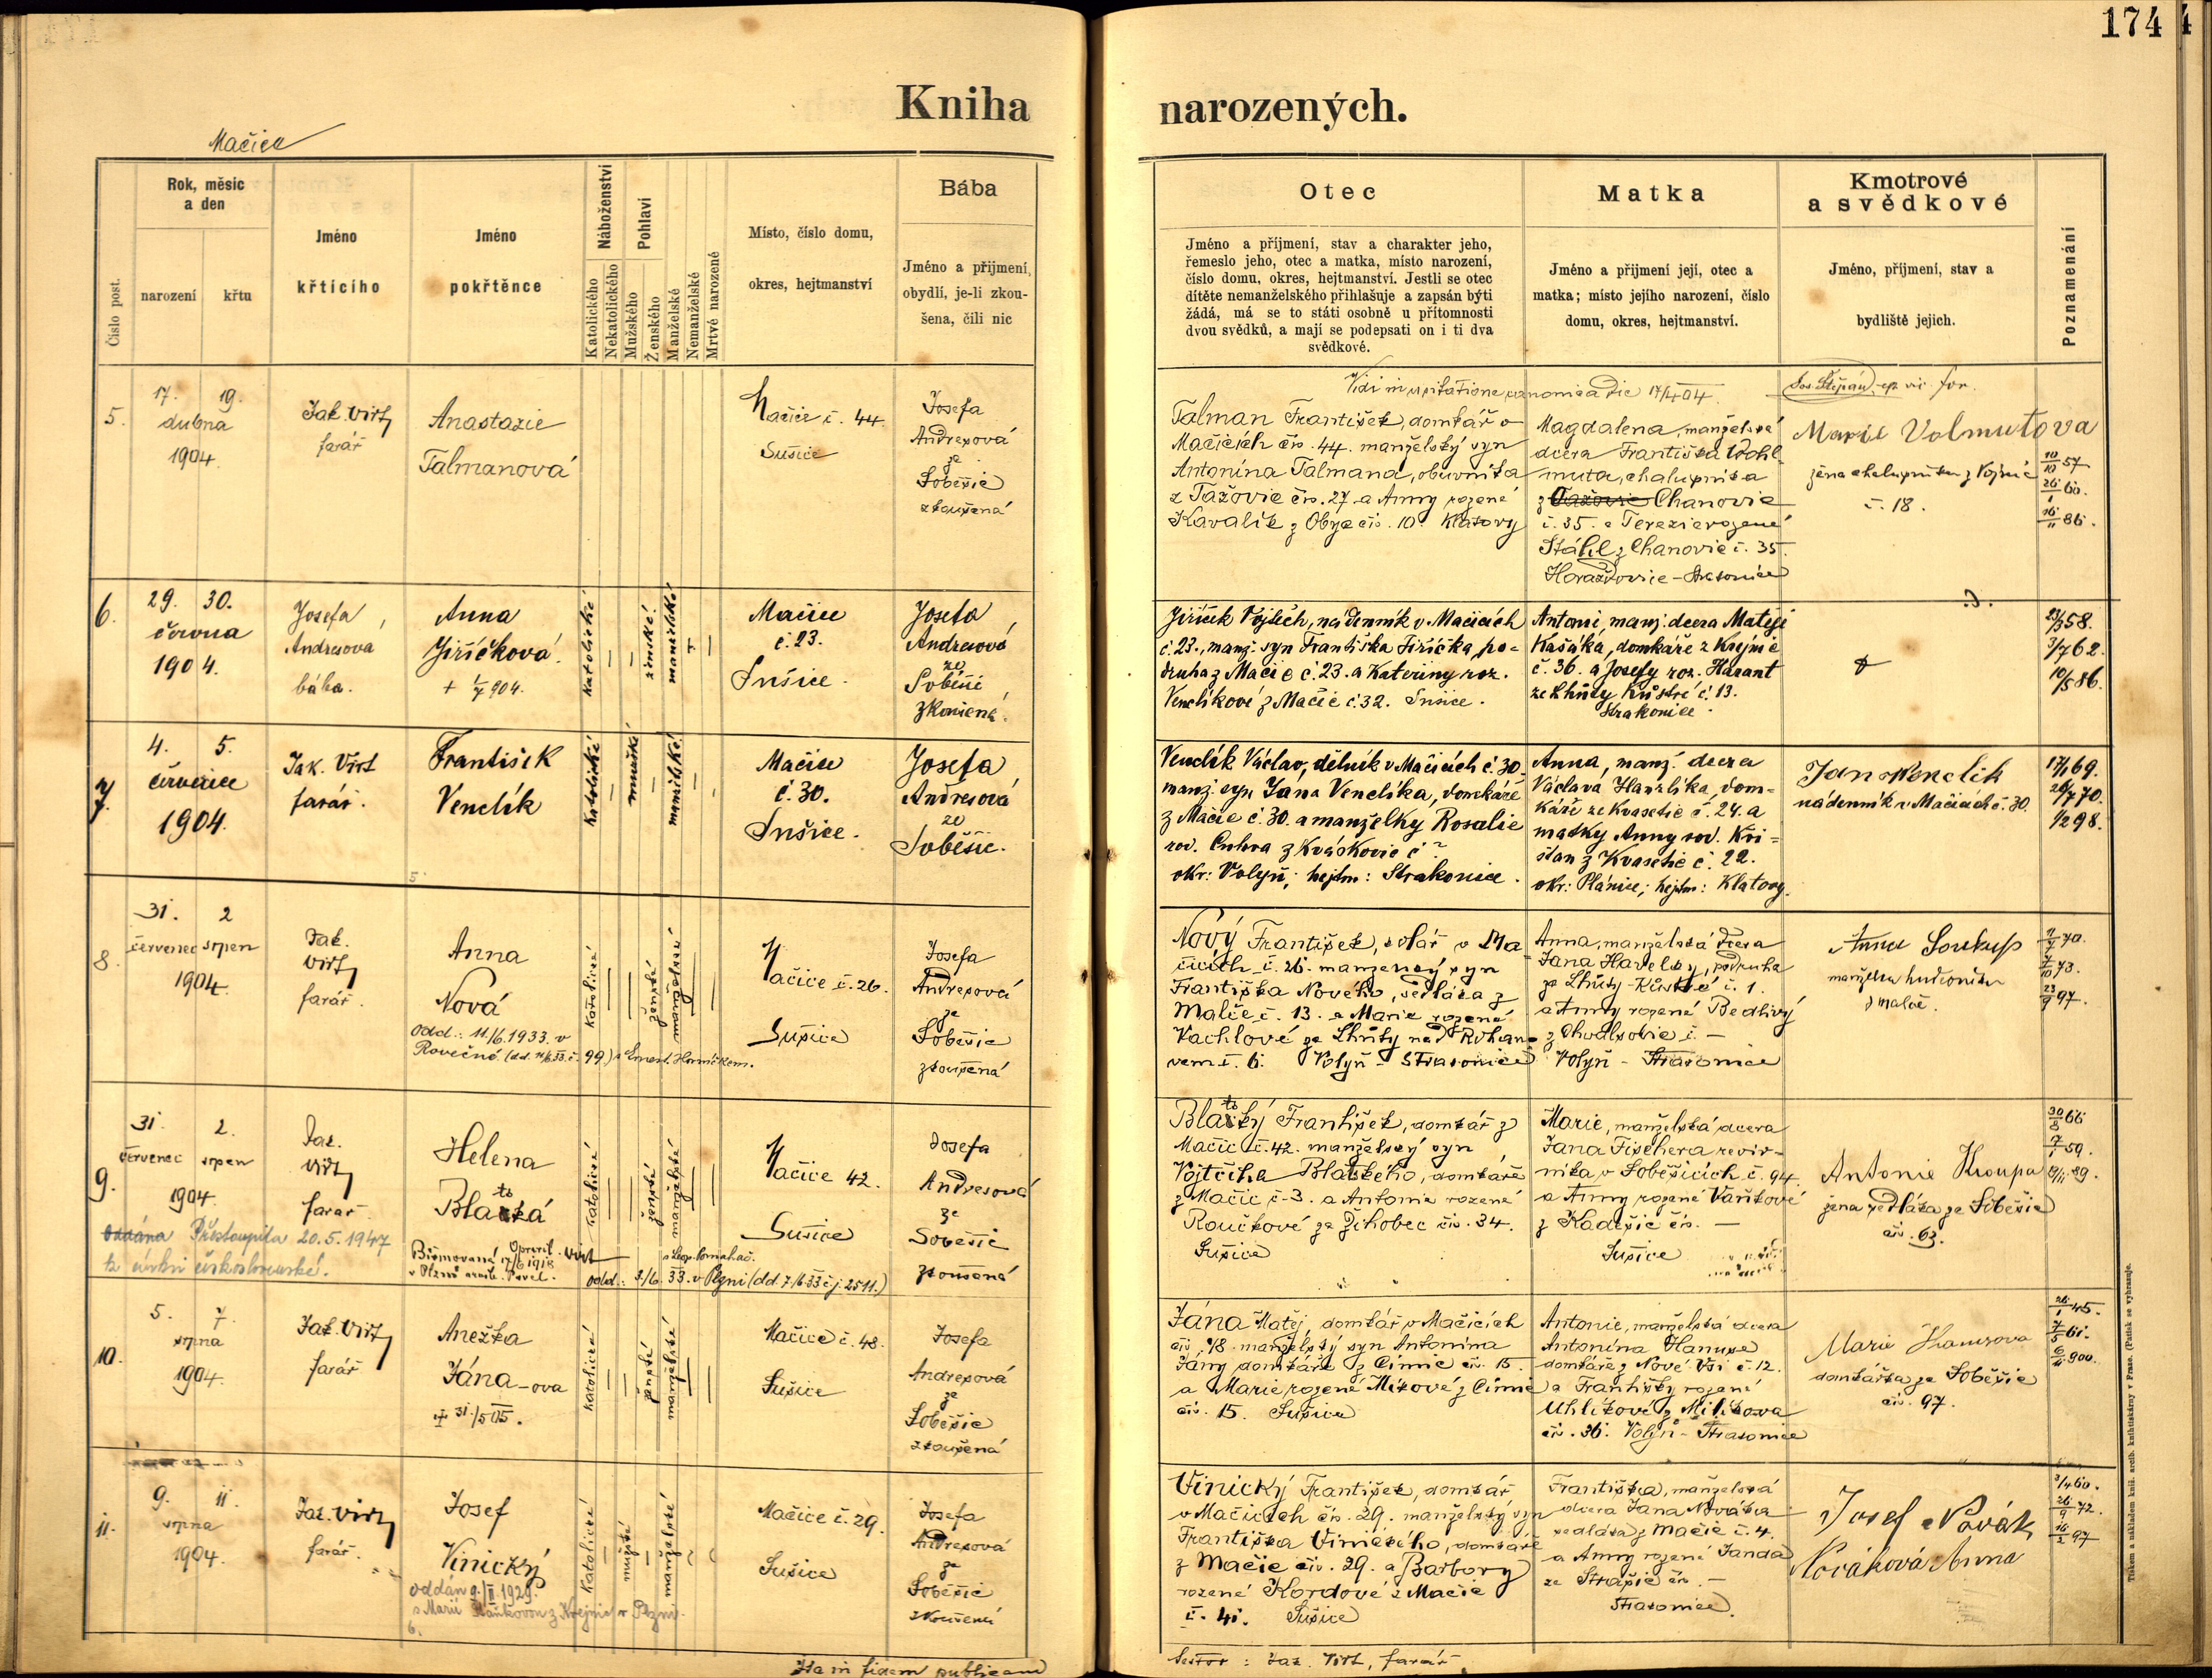 174
Kniha narozených.
Mačice
Číslo post.
Rok, měsíc
a den
narození
křtu
Jméno
křtícího
Jméno
pokřtěnce
Náboženství
Katolického
Nekatolického
Pohlaví
Mužského
Ženského
Manželské
Nemanželské
Mrtvé narozené
Místo, číslo domu,
okres, hejtmanství
Bába
Jméno a přijmení,
obydlí, je-li zkou-
šena, čili nic
Otec
Jméno a příjmení, stav a charakter jeho,
řemeslo jeho, otec a matka, místo narození,
číslo domu, okres, hejtmanství. Jestli se otec
dítěte nemanželského přihlašuje a zapsán býti
žádá, má se to státi osobně u přítomnosti
dvou svědků, a mají se podepsati on i ti dva
svědkové.
Matka
Jméno a přijmení její, otec a
matka; místo jejího narození, číslo
domu, okres, hejtmanství.
Kmotrové
a svědkové
Jméno, příjmení, stav a
bydliště jejich.
Poznamenání
5.
17. 19.
dubna
1904.
Jak. Virt
farář
Anastazie
Talmanová
Mačice č. 44.
Sušice
Josefa
Andresová
ze
Soběšic
zkoušená
Vidi in visitatione canonica die 17/4 04.
Jos. Štěpán, ep. vic. for.
Talman František, domkář v
Mačicích čís. 44. manželský syn
Antonína Talmana, obuvníka
z Tažovic čís. 27 a Anny rozené
Kavalík z Obyc čís. 10. Klatovy
Magdalena, manželská
dcera Františka Wohl-
muta, chalupníka
z Tažovic Chanovic
č. 35. a Terezie rozené
Stáhl z Chanovic č. 35.
Horažďovice - Strakonice
Marie Volmutova
žena chalupníka z Vojnic
č. 18.
10/10 57
26/1 60.
16/11 86.
6.
29. 30.
června
1904.
Josefa
Andresova
bába.
Anna
Jiříčková.
+ 1/7 904.
Katolické
ženské.
manželské
Mačice
č. 23.
Sušice.
Josefa
Andresová
ze
Soběšic
zkoušená.
Jiříček Vojtěch, nádenník v Mačicích
č. 23., manž. syn Františka Jiříčka, po-
druha z Mačic č. 23. a Kateřiny roz.
Venclíkové z Mačic č. 32. Sušice.
Antonie, manž. dcera Matěje
Kašáka, domkáře z Krejnic
č. 36. a Josefy roz. Harant
ze Lhůty Kůstré č. 13.
Strakonice.
23/3 58.
3/7 62.
10/5 86.
7.
4. 5.
července
1904.
Jak. Virt
farář.
František
Venclík
Katolické
mužské
manželské
Mačice
č. 30.
Sušice.
Josefa
Andresová
ze
Soběšic.
Venclík Václav, dělník v Mačicích č. 30.
manž. syn Jana Venclíka, domkáře
z Mačic č. 30. a manželky Rosalie
roz. Cuhra z Kváskovic č?
okr: Volyň; hejtm: Strakonice.
Anna, manž. dcera
Václava Hanzlíka, dom-
káře ze Kvasetic č. 24. a
matky Anny roz. Kři-
stan z Kvasetic č. 22.
okr: Plánice; hejtm: Klatovy.
Jan Wenclik
nádenník v Mačicích č. 30.
17/1 69.
29/7 70.
1/2 98.
8.
31. 2
červenec srpen
1904.
Jak.
Virt
farář.
Anna
Nová
odd.: 11/6. 1933. v
Rovečné (dd. 11/6.33.č. 99) s Ernest. Horníčkem.
Katolické
ženské
manželské
Mačice č. 26.
Sušice
Josefa
Andresová
ze
Soběšic
zkoušená
Nový František, kolář v Ma-
čicích č. 26. manželský syn
Františka Nového, sedláka z
Malče č. 13. a Marie rozené
Vachlové ze Lhůty nad Rohano-
vem č. 6. Volyň - Strakonice
Anna, manželská dcera
Jana Havelky, podruha
ze Lhůty-Kůstré č. 1.
a Anny rozené Bedlivý
z Chvalšovic č. —
Volyň - Strakonice
Anna Soukup
manželka hudebníka
z Malče.
7/10 73.
23/9 97.
9.
31. 2.
červenec srpen
1904.
Jak.
Virt
farář
Helena
Blatská
oddána Přestoupila 20.5.1947
k církvi československé.
Biřmovaná 17/6 1918
v Plzni arcib. Pavel.
Opravil Virt
s Leop. Pomahač.
odd.: 3./6. 33. v Plzni (dd. 7./6.33 č.j. 2511.)
Katolické
ženské
manželské
Mačice 42.
Sušice
Josefa
Andresová
ze
Soběšic
zkoušená
Blatský František, domkář z
Mačic č. 42. manželský syn
Vojtěcha Blatského, domkáře
z Mačic č. 3. a Antonie rozené
Roučkové ze Žihobec čís. 34.
Sušice
Marie, manželská dcera
Jana Fischera revír-
níka v Soběšicích č. 94.
a Anny rozené Vaňkové
z Kadešic čís. —
Sušice
Antonie Kroupa
žena sedláka ze Soběšic
čís. 63.
30/8 66
7/1 59.
19/11 89.
10.
5. 7.
srpna
1904.
Jak. Virt
farář
Anežka
Jána-ova
+ 31./5 05.
Katolické
ženské
manželské
Mačice č. 48.
Sušice
Josefa
Andresová
ze
Soběšic
zkoušená
Jána Matěj, domkář v Mačicích
čís. 48. manželský syn Antonína
Jány domkáře z Čimic čís. 15.
a Marie rozené Mikové z Čimic
čís. 15. Sušice
Antonie, manželská dcera
Antonína Hanuse
domkáře z Nové Vsi č. 12.
a Františky rozené
Uhlíkové z Milíkova
čís. 36. Volyň - Strakonice
Marie Hanusova
domkářka ze Soběšic
čís. 97.
26/1 45.
7/5 61.
6/11 900.
11.
9. 11.
srpna
1904.
Jak. Virt
farář.
Josef
Vinický
oddán 9./II.1929.
s Marií Staňkovou z Krejnic v Plzni.
Katolické
mužské
manželské
Mačice č. 29.
Sušice
Josefa
Andresová
ze
Soběšic
zkoušená
Vinický František, domkář
v Mačicích čís. 29. manželský syn
Františka Vinického, domkáře
z Mačic čís. 29. a Barbory
rozené Kordové z Mačic
č. 41. Sušice
Františka, manželská
dcera Jana Nováka
sedláka z Mačic č. 4.
a Anny rozené Janda
ze Strašic čís. —
Strakonice.
Josef Novák
Nováková Anna
3/4 60.
26/9 72.
16/2 97
Ita in fidem publicam
testor: Jak. Virt, farář
Tiskem a nákladem kníž. arcib. knihtiskárny v Praze. (Patisk se vyhrazuje.